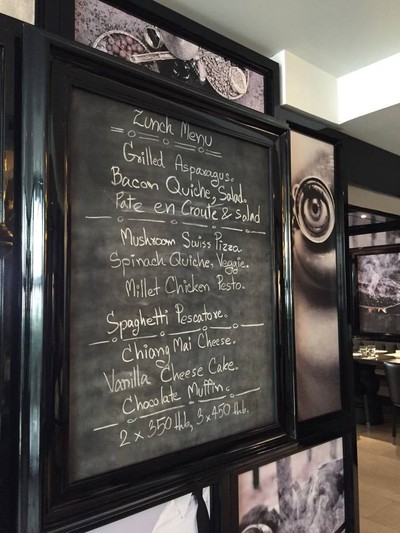 Lunch Menu
Grilled Asparagus.
Bacon Quiche, Salad.
Pate en Croute & Salad
Mushroom Swiss Pizza
Spinach Quiche, Veggie.
Millet Chicken Pesto.
Spaghetti Pescatore.
Chiang Mai Cheese.
Vanilla Cheese Cake.
Chocolate Muffin.
2 x 350 thb, 3 x 450 thb.